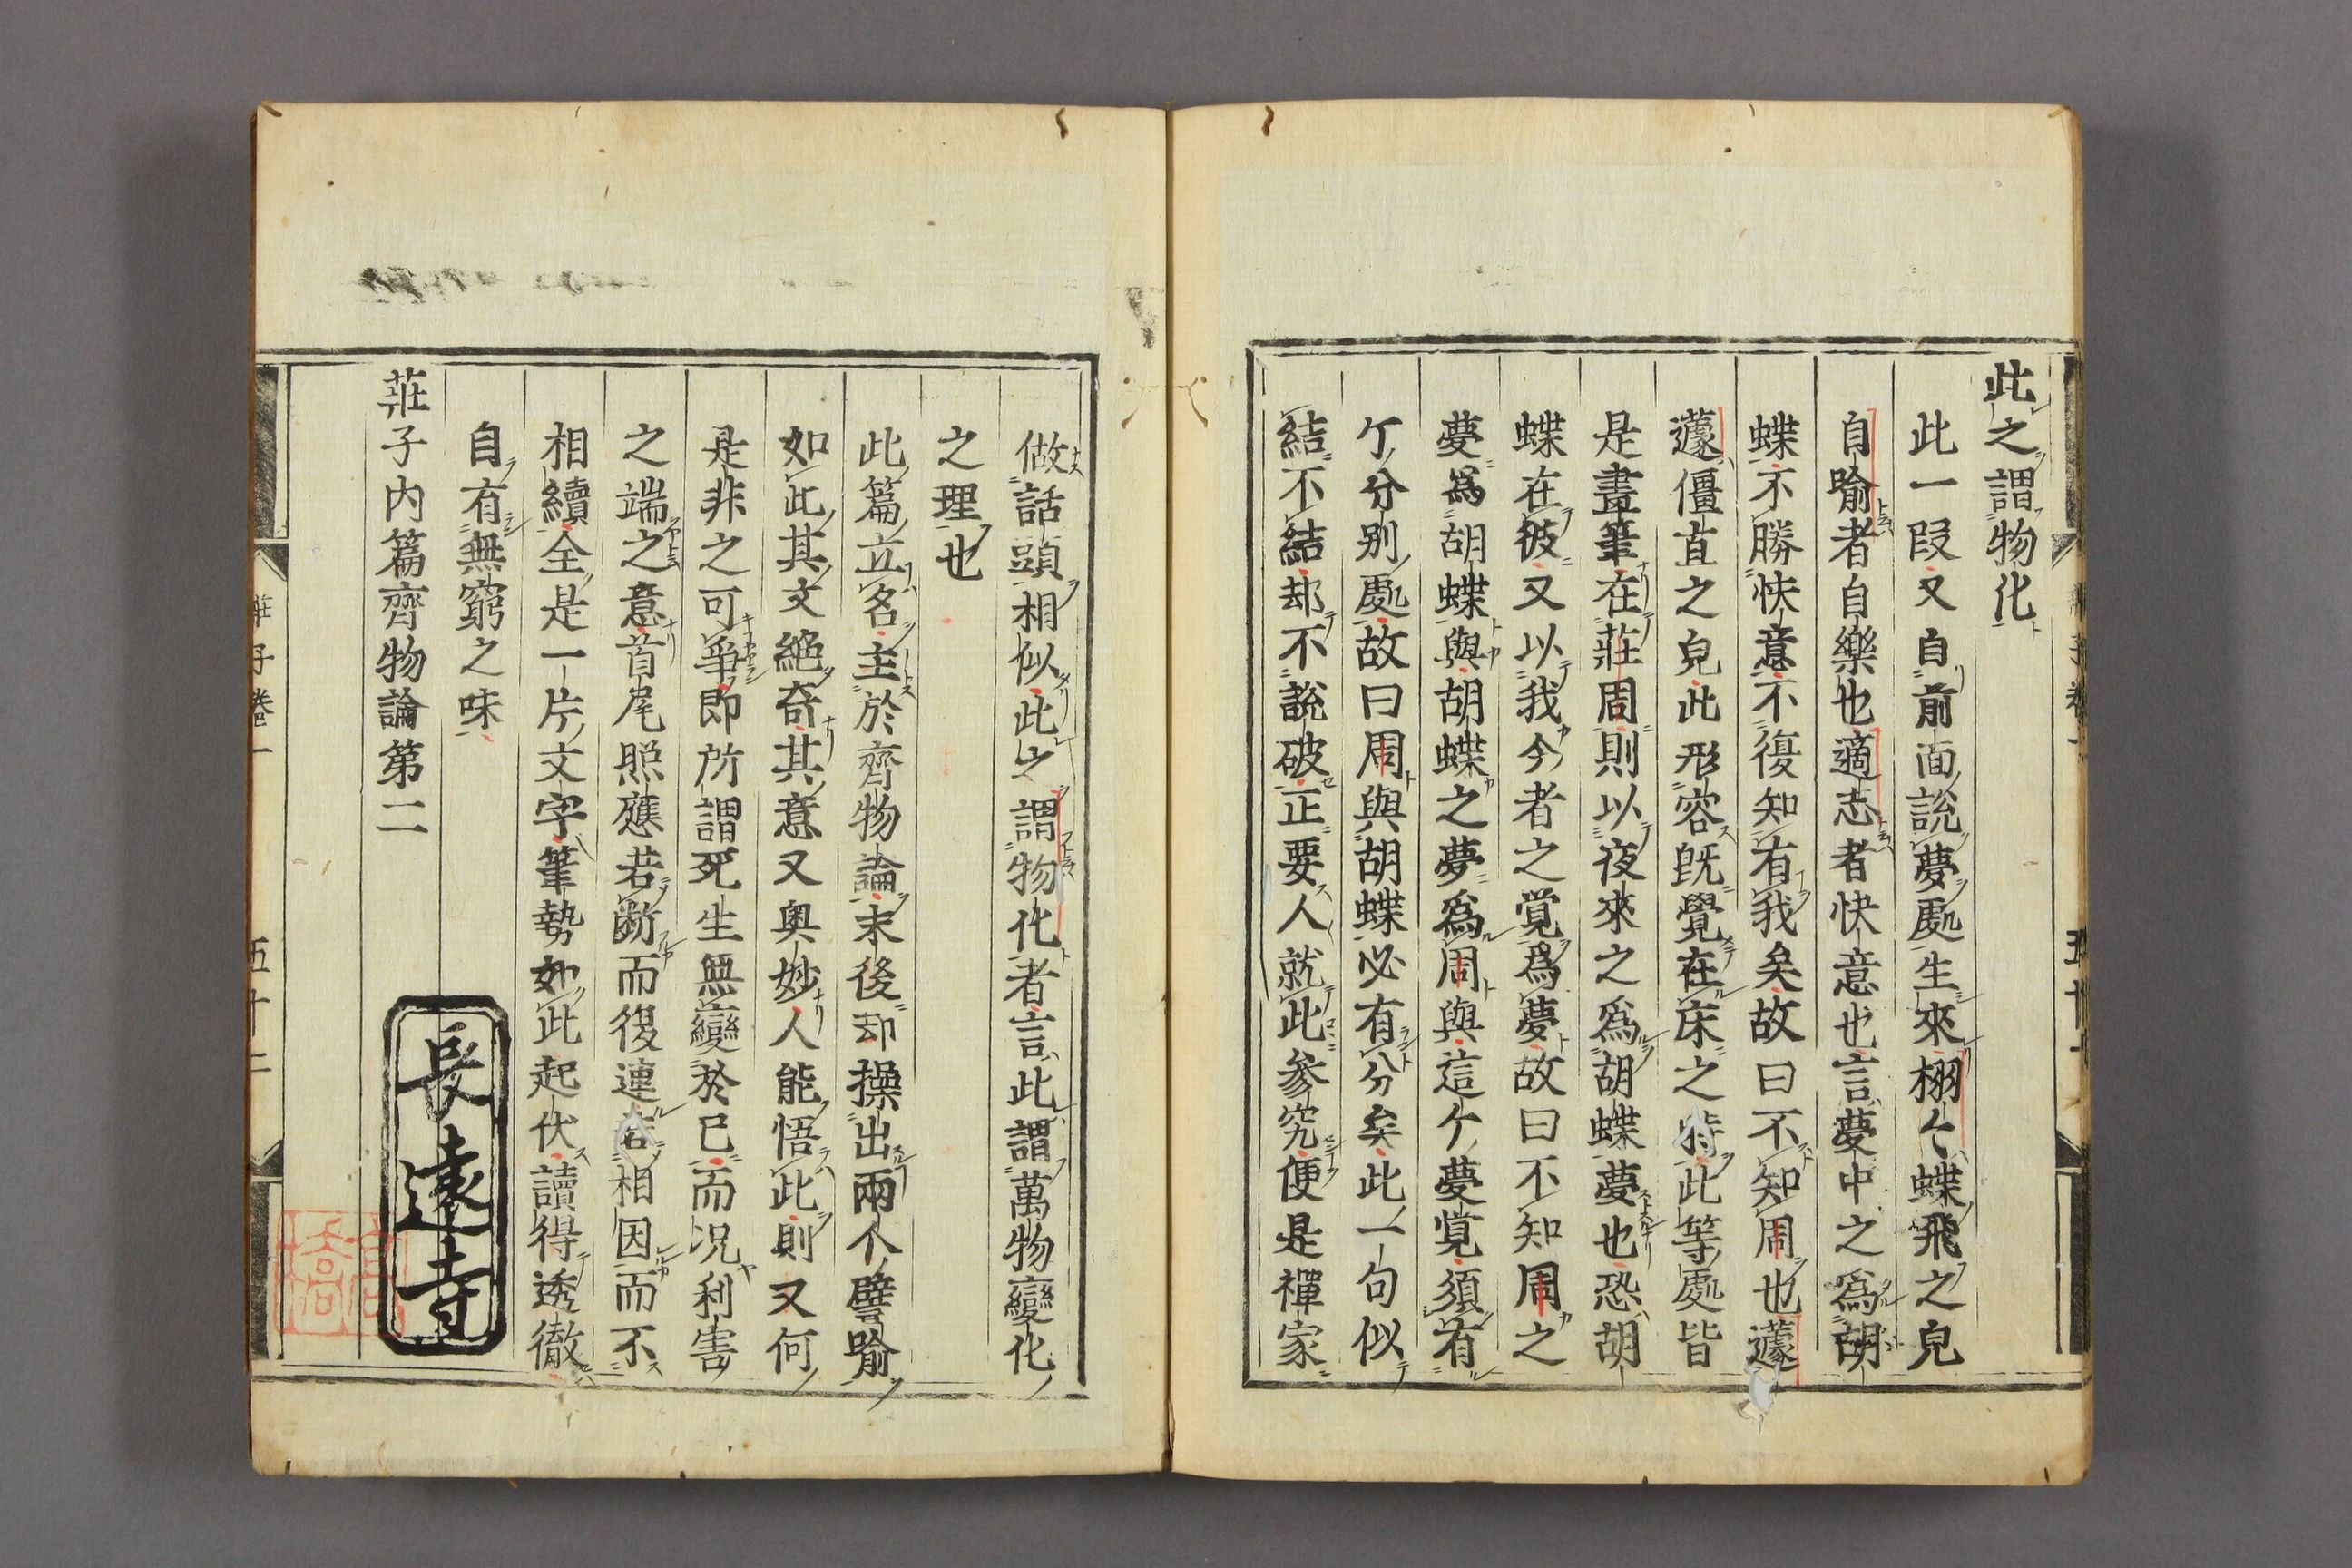 此之謂物化
此一段又自前面說夢處生來栩々蝶飛之皃
自喻者自樂也適志者快意也言夢中之爲胡
蝶不勝快意不復知有我矣故曰不知周也蘧
蘧僵直之皃此形容旣覺在床之時此等處皆
是畫筆在莊周則以夜來之爲胡蝶夢也恐胡
蝶在彼又以我今者之覺爲夢故曰不知周之
夢爲胡蝶與胡蝶之夢爲周與這个夢覺須有
个分别處故曰周與胡蝶必有分矣此一句似
結不結却不說破正要人就此參究便是禪家
做話頭相似此之謂物化者言此謂萬物變化
之理也
此篇立名主於齊物論末後却撰出兩个譬喻
如此其文絶奇其意又奥妙人能悟此則又何
是非之可爭即所謂死生無變於已而况利害
之端之意首尾照應若斷而復連若相因而不
相續全是一片文字筆勢如此起伏讀得透徹
自有無窮之味
莊子内篇齊物論第二
長遠寺
莊子卷一
五十二